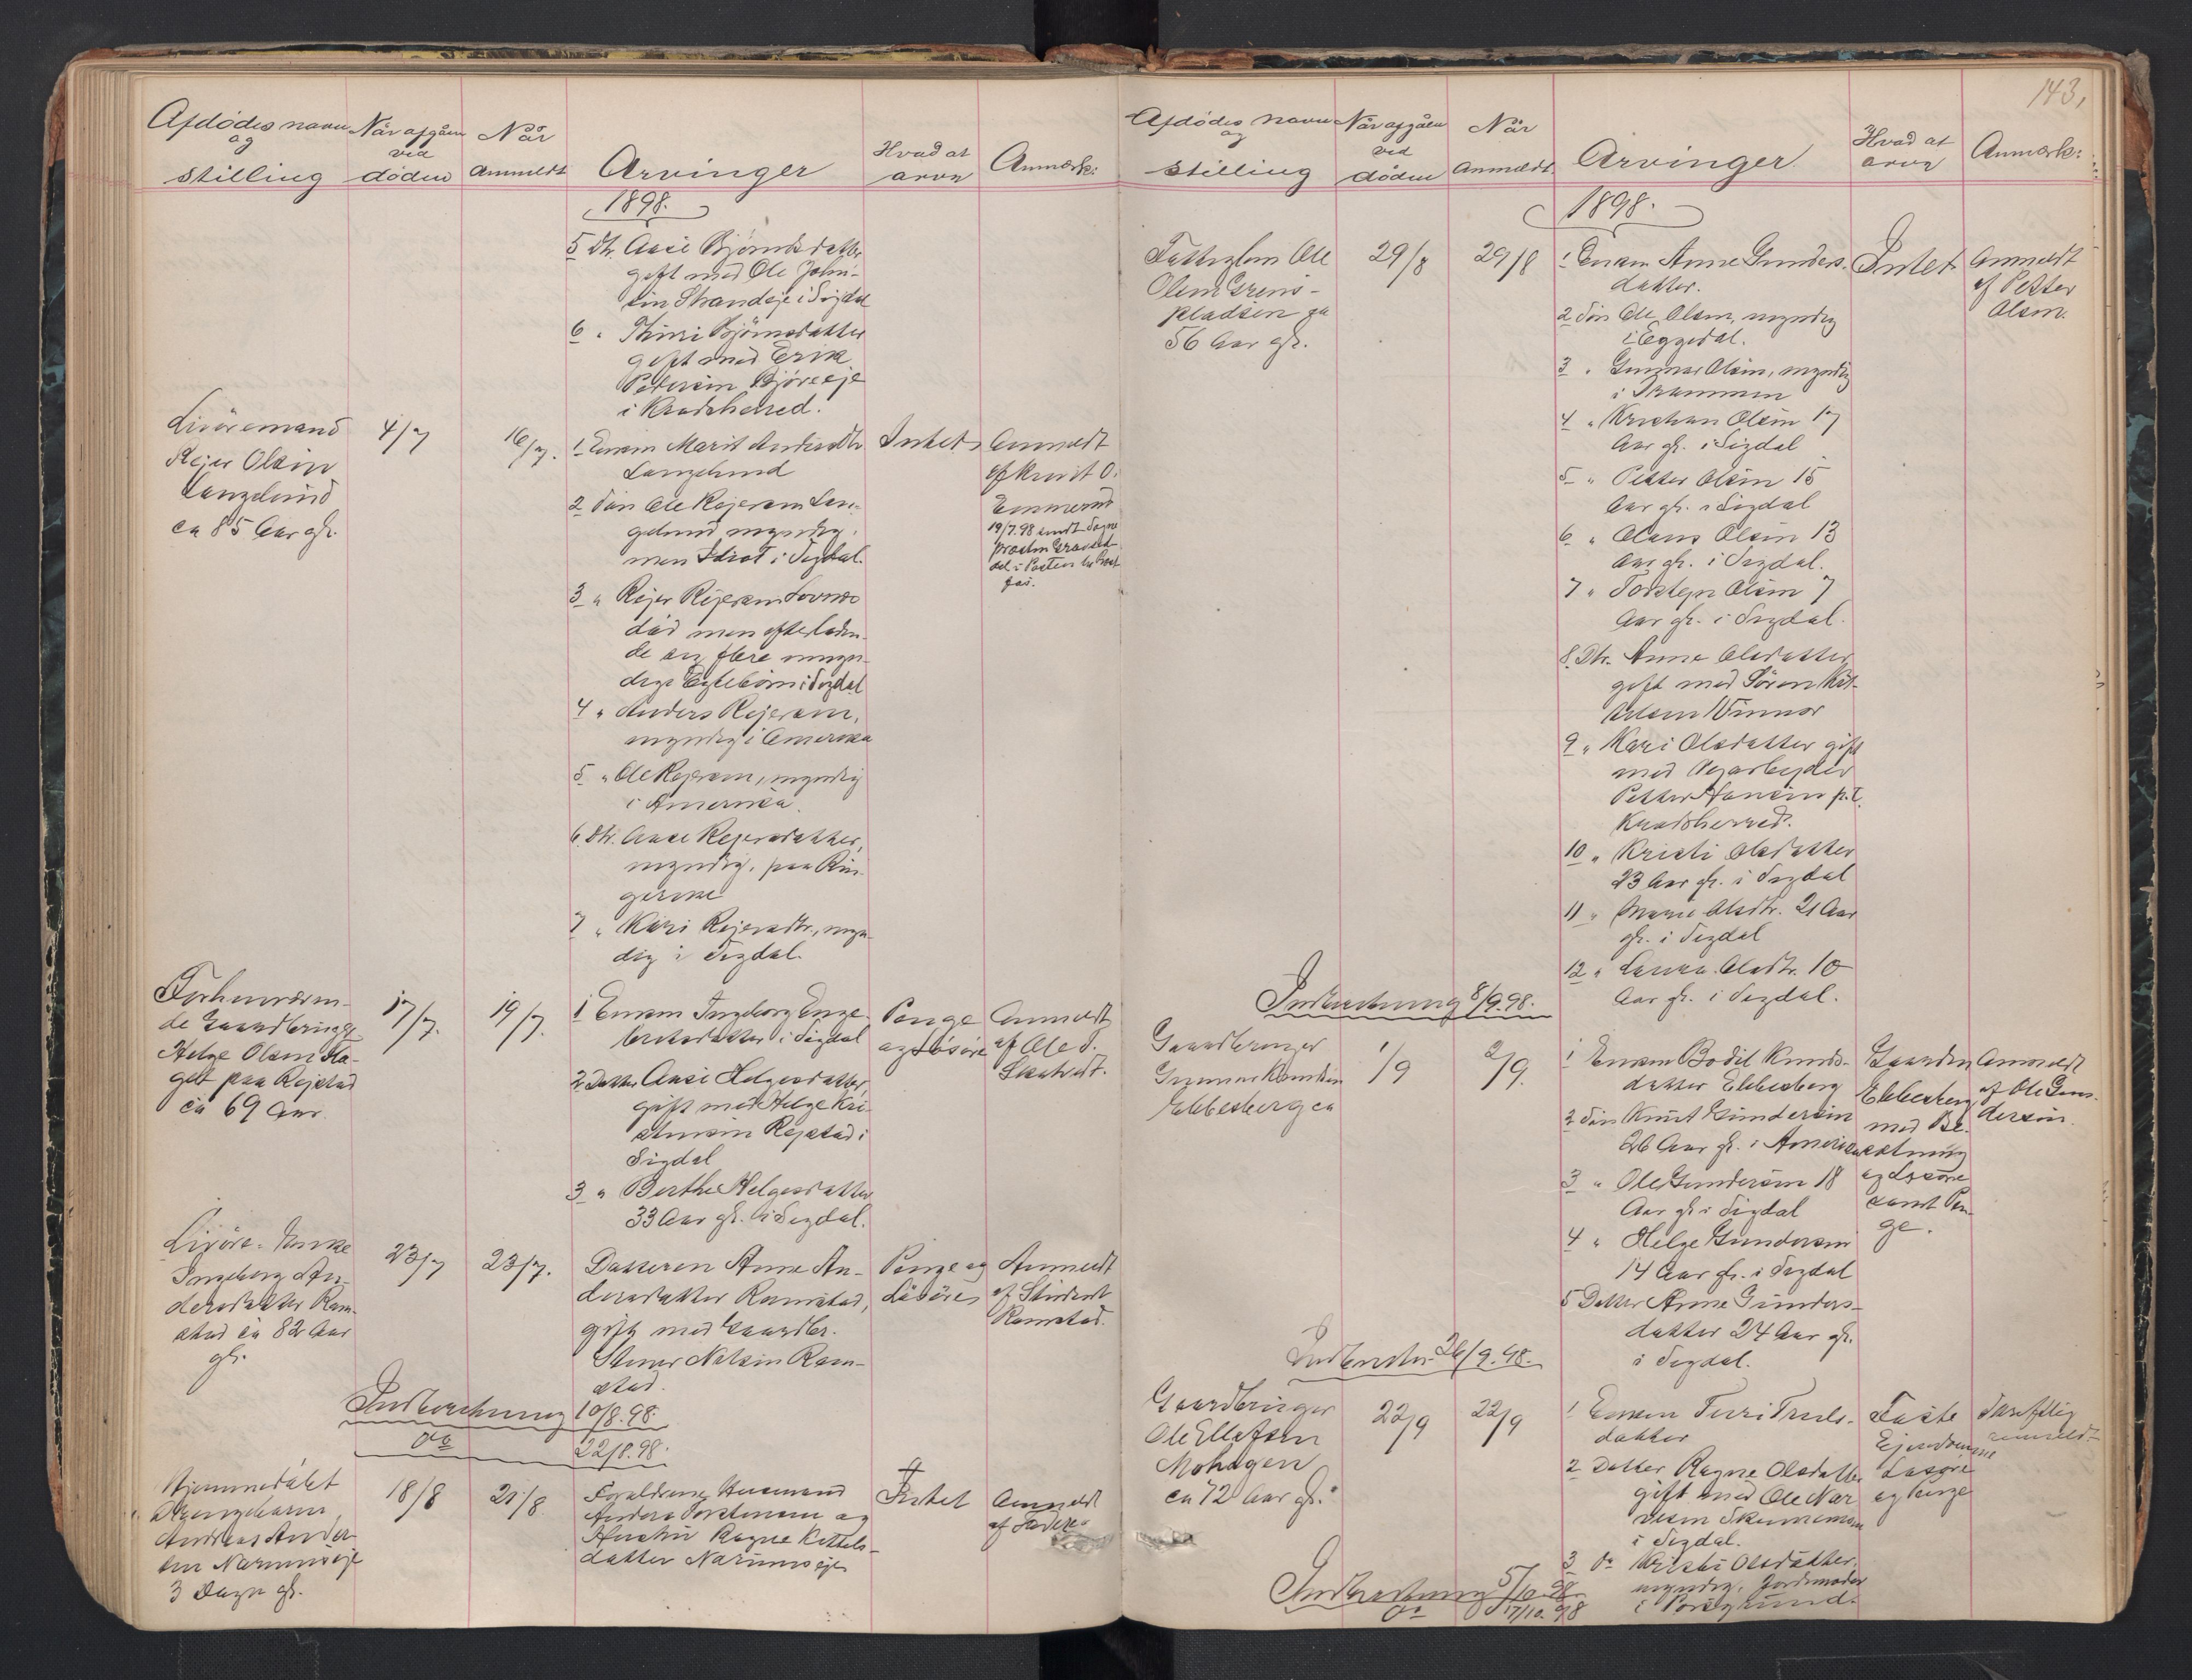 Afdødes navn
og
stilling
Når afgåen
ved
døden
Når
Anmeldt
Arvinger
Hvad at
arve
Anmærk:
1898.
5 Dtr. Aase Bjørnsdatter
gift med Ole John-
sen Strandeje i Sigdal
6 " Thuri Bjørnsdatter
gift med Erik
Petersen Bjøreeje
i Krødsherred.
Livøremand
Rejer Olsen
Langelund
ca 85 Aar gl.
4/7
16/7.
1 Enken Marit Andersdtr
Langelund
2 Søn Ole Rejersen Lan-
gelund, myndig,
men Idiot i Sigdal.
3 " Rejer Rejersen
død men efterladen-
de sig flere myn-
dige Egtebørn i Sigdal
4 " Anders Rejersen,
myndig i Amerika
5 " Ole Rejersen, myndig
i Amerika.
6. Dtr. Aase Rejersdatter,
myndig, paa Rin-
gerike
7 " Kari Rejersdtr., myn-
dig i Sigdal.
Intet
Anmeldt
af Knut O.
19/7.98 sendt Sogne
presten
Forhenværen-
de Gaardbruger
Helge Olsen
paa Rejstad
ca 69 Aar.
17/7.
19/7.
1 Enken Ingeborg Enge-
bretsdatter i Sigdal
2 Datter Aase Helgesdatter,
gift med Helge Kri-
stensen Rejstad i
Sigdal
3 " Berthe Helgesdatter
33 Aar gl. i Sigdal.
Penge
og Løsøre
Anmeldt
af Ole O.
Livøre-Enke
Ingeborg An-
dersdatter Ram-
stad ca 82 Aar
gl.
23/7
23/7.
Datteren Anne An-
dersdatter Ramstad,
gift med Gaardbr.
Stener Nilsen Ram-
stad.
Penge og
Løsøre
Anmeldt
af Student
Ramstad.
Indberetning 10/8.98.
Do 22/8.98.
Hjemmedøbt
Drengebarn
Andreas Ander-
sen
3 Dage gl.
18/8
21/8.
Forældrene Husmand
Anders Torstensen og
Hustru Ragne Kittels-
datter
Intet
Anmeldt
af Fader
143,
Afdødes navn
og
stilling
Når afgåen
ved
døden
Når
Anmeldt.
Arvinger
Hvad at
arve
Anmærk:
1898.
Fattiglem Ole
Olsen Grens-
pladsen ca
56 Aar gl.
29/8
29/8
1 Enken Anne Gunders-
datter.
2 Søn Ole Olsen, myndig
i Eggedal.
3 " Gunnar Olsen, myndig
i Drammen
4 " Kristian Olsen 17
Aar gl. i Sigdal
5 " Petter Olsen 15
Aar gl. i Sigdal
6 " Olaus Olsen 13
Aar gl. i Sigdal.
7 " Torstejn Olsen 7
Aar gl. i Sigdal.
8. Dtr. Anne Olsdatter
gift med Søren Kit-
telsen
9 " Kari Olsdatter gift
med Vejarbejder
Petter Hansen p.t.
Krødsherred.
10 " Kristi Olsdatter
23 Aar gl. i Sigdal
11 " Marie Olsdtr. 21 Aar
gl. i Sigdal
12 " Laura Olsdtr. 10
Aar gl. i Sigdal.
Intet
Anmeldt
af Petter
Olsen.
Indberetning 8/9.98.
Gaardbruger
Gunnar Knudsen
Ebbesberg ca
1/9
2/9.
1 Enken Bodil Knuds-
datter Ebbesberg
2 Søn Knut Gundersen
26 Aar gl. i Amerika
3 " Ole Gundersen 18
Aar gl. i Sigdal
4 " Helge Gundersen
14 Aar gl. i Sigdal
5 Datter Anne Gunders-
datter 24 Aar gl.
i Sigdal.
Gaarden
Ebbesberg
med Be-
sætning
og Løsøre
samt Pen-
ge.
Anmeldt
af Ole Gun-
dersen.
Indberetn. 26/9.98.
Gaardbruger
Ole Ellefsen
Mohagen
ca 72 Aar gl.
22/9
22/9
1 Enken Turi Truls-
datter
2 Datter Ragne Olsdatter
gift med Ole Nar-
vesen
i Sigdal.
3 Do Kristi Olsdatter,
myndig, Jordmoder
i Porsgrund.
Faste
Ejendomme
Løsøre
og Penge
Skriftlig
anmeldt
Indberetning 5/10.98
Do 17/10.98